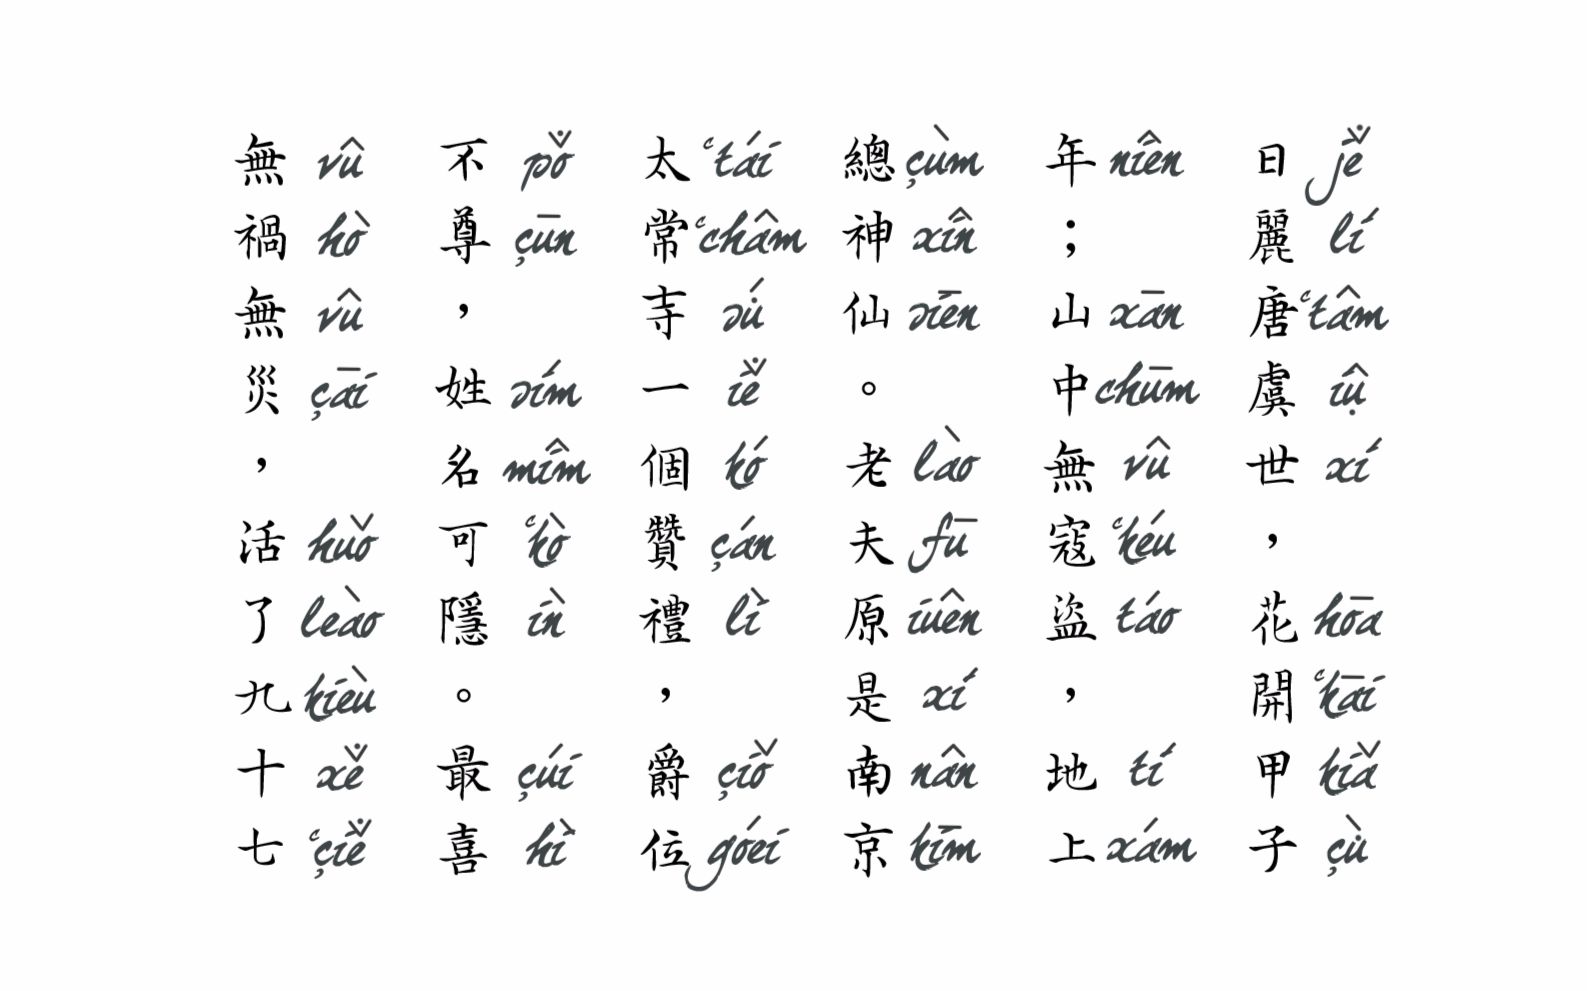 日 jě̇ 麗 lí 唐 ʿtâm 虞 iụ̂ 世 xí ， 花 hōa 開 ʿkāi 甲 kiǎ 子 çu̇̀
年 niên ； 山 xān 中 chūm 無 vû 寇 ʿkéu 盜 táo ， 地 tí 上 xám
總 çùm 神 xîn 仙 siēn 。 老 lào 夫 fū 原 iuên 是 xí 南 nân 京 kīm
太 ʿtái 常 ʿchâm 寺 su̇́ 一 iě̇ 個 kó 贊 çán 禮 lì ， 爵 çiǒ 位 góei
不 pǒ̇ 尊 çūn ， 姓 sím 名 mîm 可 ʿkò 隱 ìn 。 最 çúi 喜 hì
無 vû 禍 hò 無 vû 災 çāi ， 活 huǒ 了 leào 九 kieù 十 xě̇ 七 ʿçiě̇